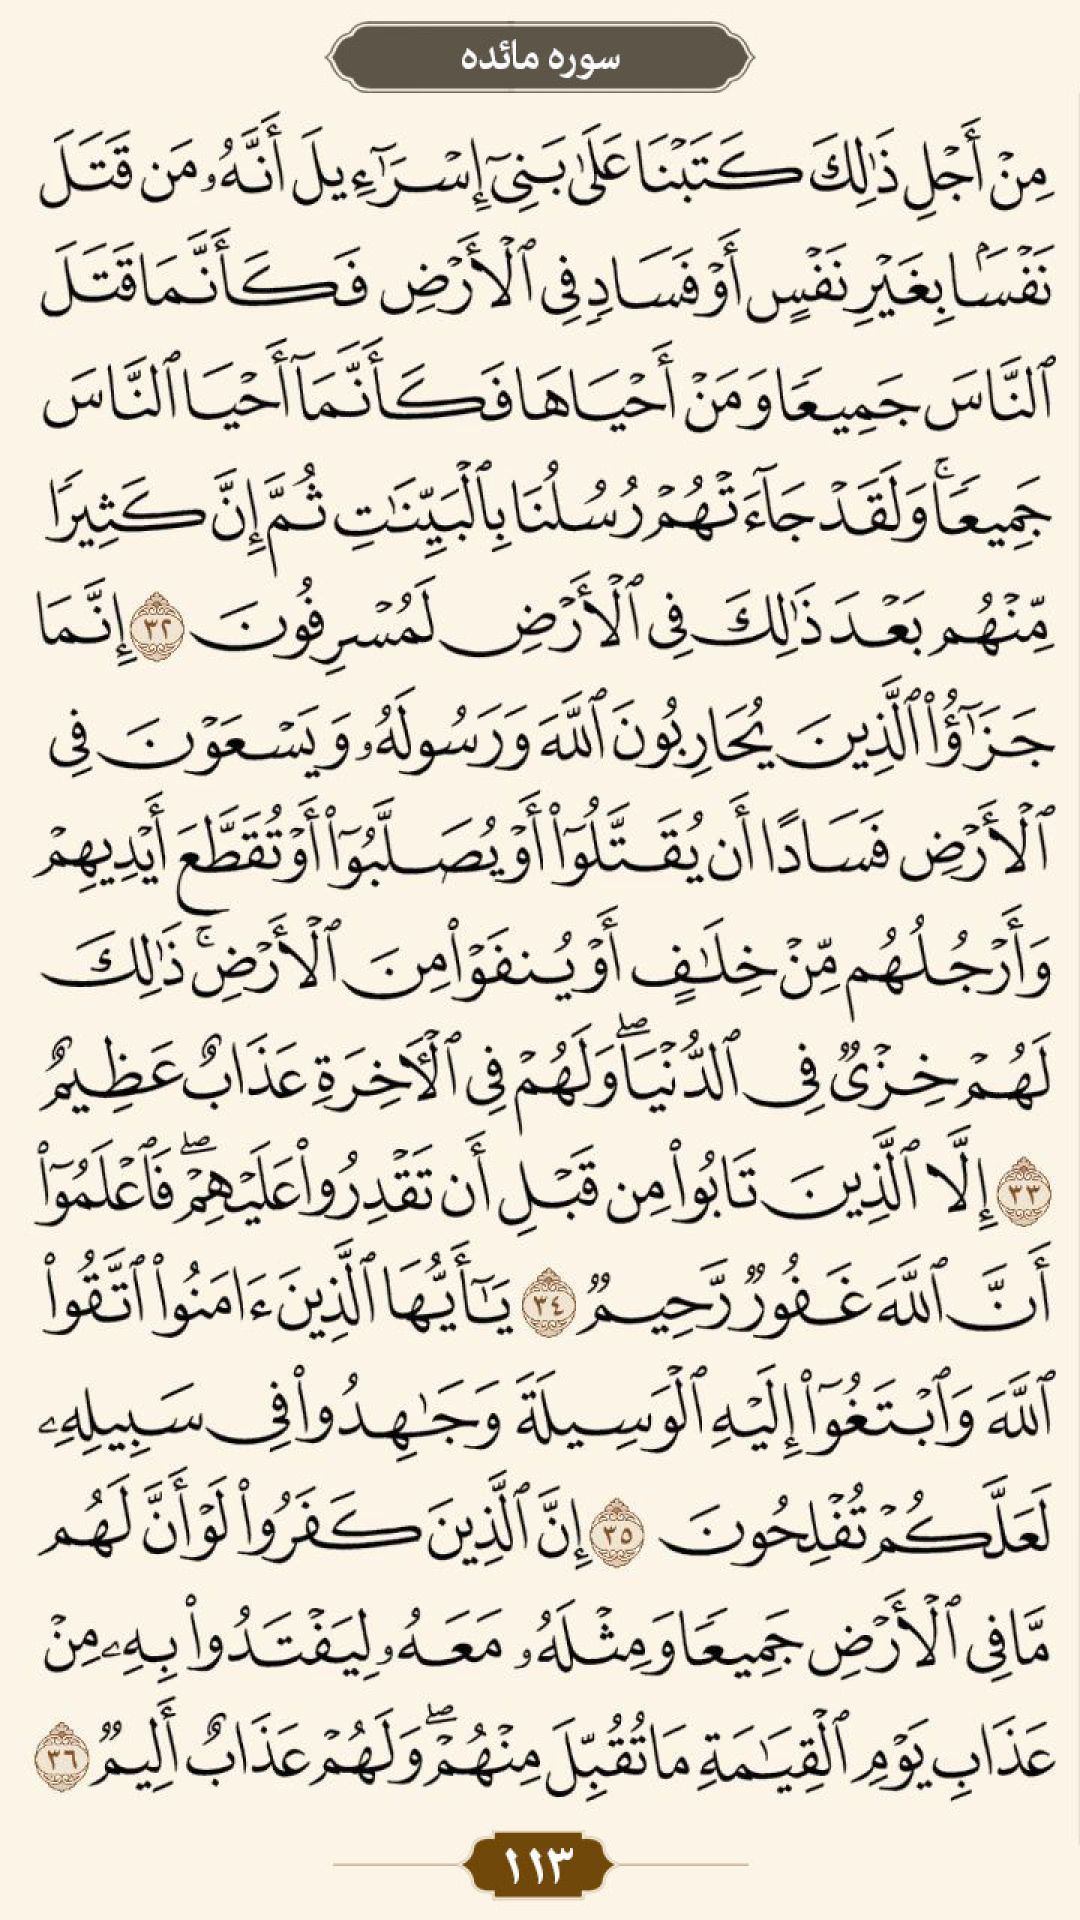 سوره مائده
مِنْ أَجْلِ ذَٰلِكَ كَتَبْنَا عَلَىٰ بَنِىٓ إِسْرَٰٓءِيلَ أَنَّهُۥ مَن قَتَلَ
نَفْسًۢا بِغَيْرِ نَفْسٍ أَوْ فَسَادٍ فِى ٱلْأَرْضِ فَكَأَنَّمَا قَتَلَ
ٱلنَّاسَ جَمِيعًا وَمَنْ أَحْيَاهَا فَكَأَنَّمَآ أَحْيَا ٱلنَّاسَ
جَمِيعًا ۚ وَلَقَدْ جَآءَتْهُمْ رُسُلُنَا بِٱلْبَيِّنَٰتِ ثُمَّ إِنَّ كَثِيرًا
مِّنْهُم بَعْدَ ذَٰلِكَ فِى ٱلْأَرْضِ لَمُسْرِفُونَ ٣٢ إِنَّمَا
جَزَٰٓؤُا۟ ٱلَّذِينَ يُحَارِبُونَ ٱللَّهَ وَرَسُولَهُۥ وَيَسْعَوْنَ فِى
ٱلْأَرْضِ فَسَادًا أَن يُقَتَّلُوٓا۟ أَوْ يُصَلَّبُوٓا۟ أَوْ تُقَطَّعَ أَيْدِيهِمْ
وَأَرْجُلُهُم مِّنْ خِلَٰفٍ أَوْ يُنفَوْا۟ مِنَ ٱلْأَرْضِ ۚ ذَٰلِكَ
لَهُمْ خِزْىٌ فِى ٱلدُّنْيَا ۖ وَلَهُمْ فِى ٱلْـَٔاخِرَةِ عَذَابٌ عَظِيمٌ
٣٣ إِلَّا ٱلَّذِينَ تَابُوا۟ مِن قَبْلِ أَن تَقْدِرُوا۟ عَلَيْهِمْ ۖ فَٱعْلَمُوٓا۟
أَنَّ ٱللَّهَ غَفُورٌ رَّحِيمٌ ٣٤ يَٰٓأَيُّهَا ٱلَّذِينَ ءَامَنُوا۟ ٱتَّقُوا۟
ٱللَّهَ وَٱبْتَغُوٓا۟ إِلَيْهِ ٱلْوَسِيلَةَ وَجَٰهِدُوا۟ فِى سَبِيلِهِۦ
لَعَلَّكُمْ تُفْلِحُونَ ٣٥ إِنَّ ٱلَّذِينَ كَفَرُوا۟ لَوْ أَنَّ لَهُم
مَّا فِى ٱلْأَرْضِ جَمِيعًا وَمِثْلَهُۥ مَعَهُۥ لِيَفْتَدُوا۟ بِهِۦ مِنْ
عَذَابِ يَوْمِ ٱلْقِيَٰمَةِ مَا تُقُبِّلَ مِنْهُمْ ۖ وَلَهُمْ عَذَابٌ أَلِيمٌ ٣٦
١١٣